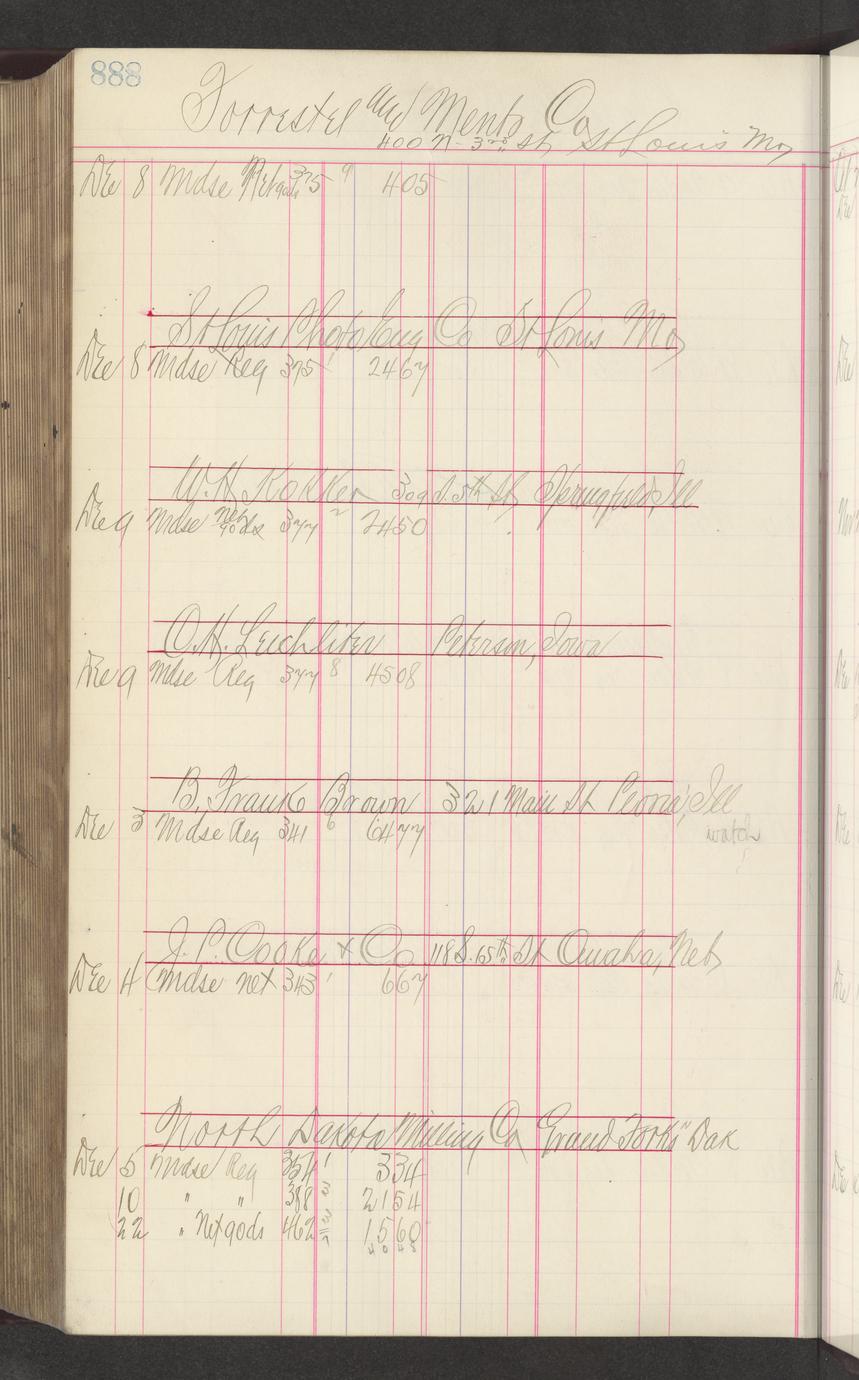 888
Forrestel and Co
400 N- 3rd St, St Louis Mo
Dec 8 Mdse Net gods 375 9 405
St Louis Photo Eng Co St Louis Mo
Dec 8 Mdse Reg 375 2467
W.H. Kokker 309 S. 5th St, Springfield, Ill
Dec 9 Mdse net gods 377 2 2450
O.H. Leichliter Peterson, Iowa
Dec 9 Mdse Reg 377 8 4508
B. Frank Brown 321 Main St Peoria, Ill
Dec 3 Mdse Reg 341 6 6477
watch
J. P. Cooke & Co 118 S. 15th St Omaha, Neb
Dec 4 Mdse net 343 1 667
North Dakota Milling Co Grand Forks Dak
Dec 5 Mdse Reg 354 1 334
10 " " 388 3 2154
22 " Net gods 462 3 1560
4048